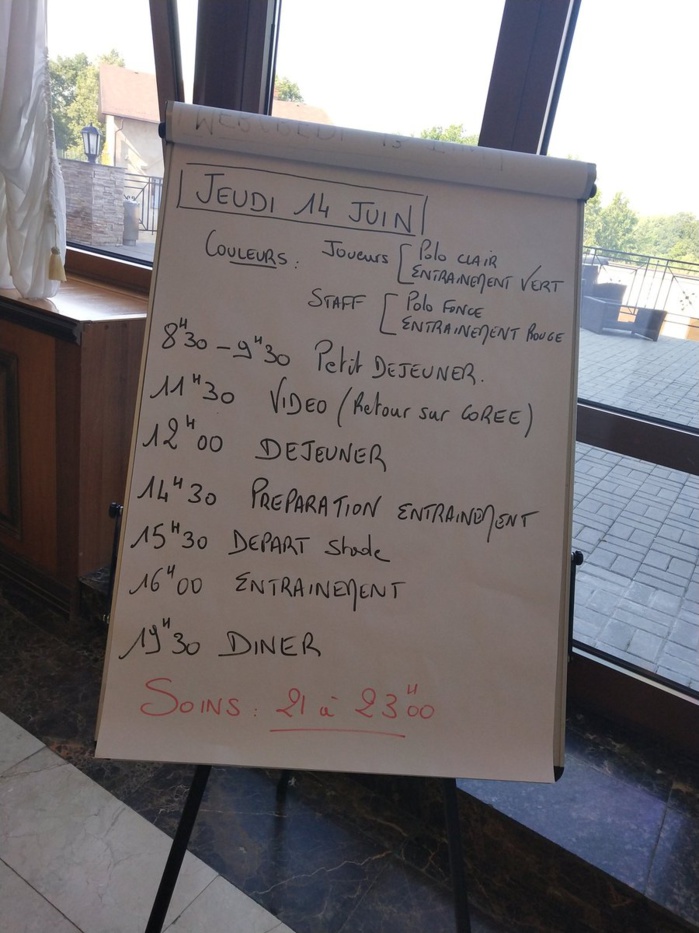 MERCREDI 13 JUIN
JEUDI 14 JUIN
COULEURS : JOUEURS [ Polo CLAIR
ENTRAINEMENT VERT
STAFF [ Polo FONCE
ENTRAINEMENT ROUGE
8H30 - 9H30 Petit DEJEUNER.
11H30 VIDEO (Retour sur COREE)
12H00 DEJEUNER
14H30 PREPARATION ENTRAINEMENT
15H30 DEPART Stade
16H00 ENTRAINEMENT
19H30 DINER
SOINS : 21 à 23H00